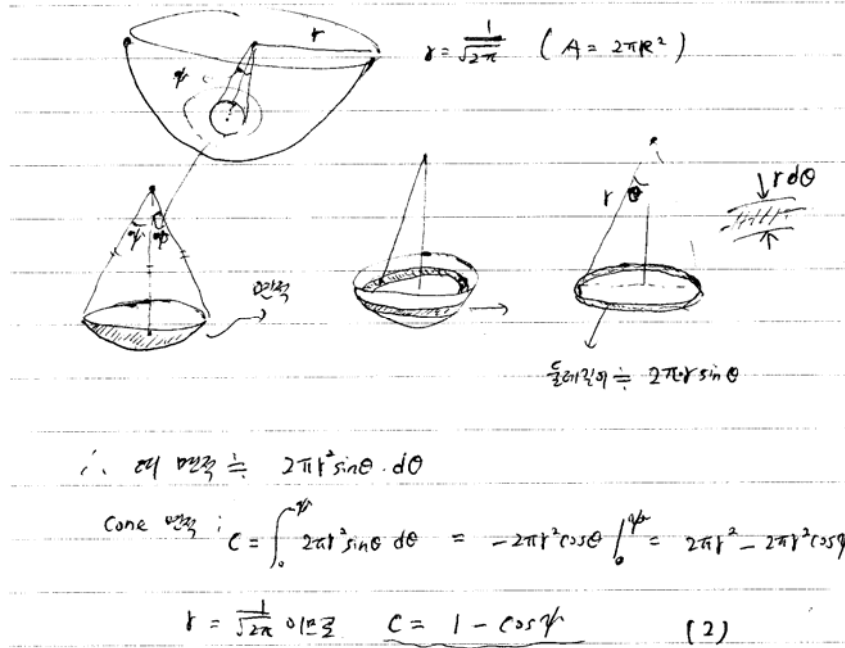 r
r = 1/√2π ( A = 2πR² )
ψ
ψ ψ
면적
r θ
r dθ
둘레길이 ≒ 2πr sin θ
∴ 띠 면적 ≒ 2πr² sinθ · dθ
Cone 면적 : C = ∫₀^ψ 2πr² sinθ dθ = -2πr² cosθ |₀^ψ = 2πr² - 2πr² cosψ
r = 1/√2π 이므로 C = 1 - cosψ (2)